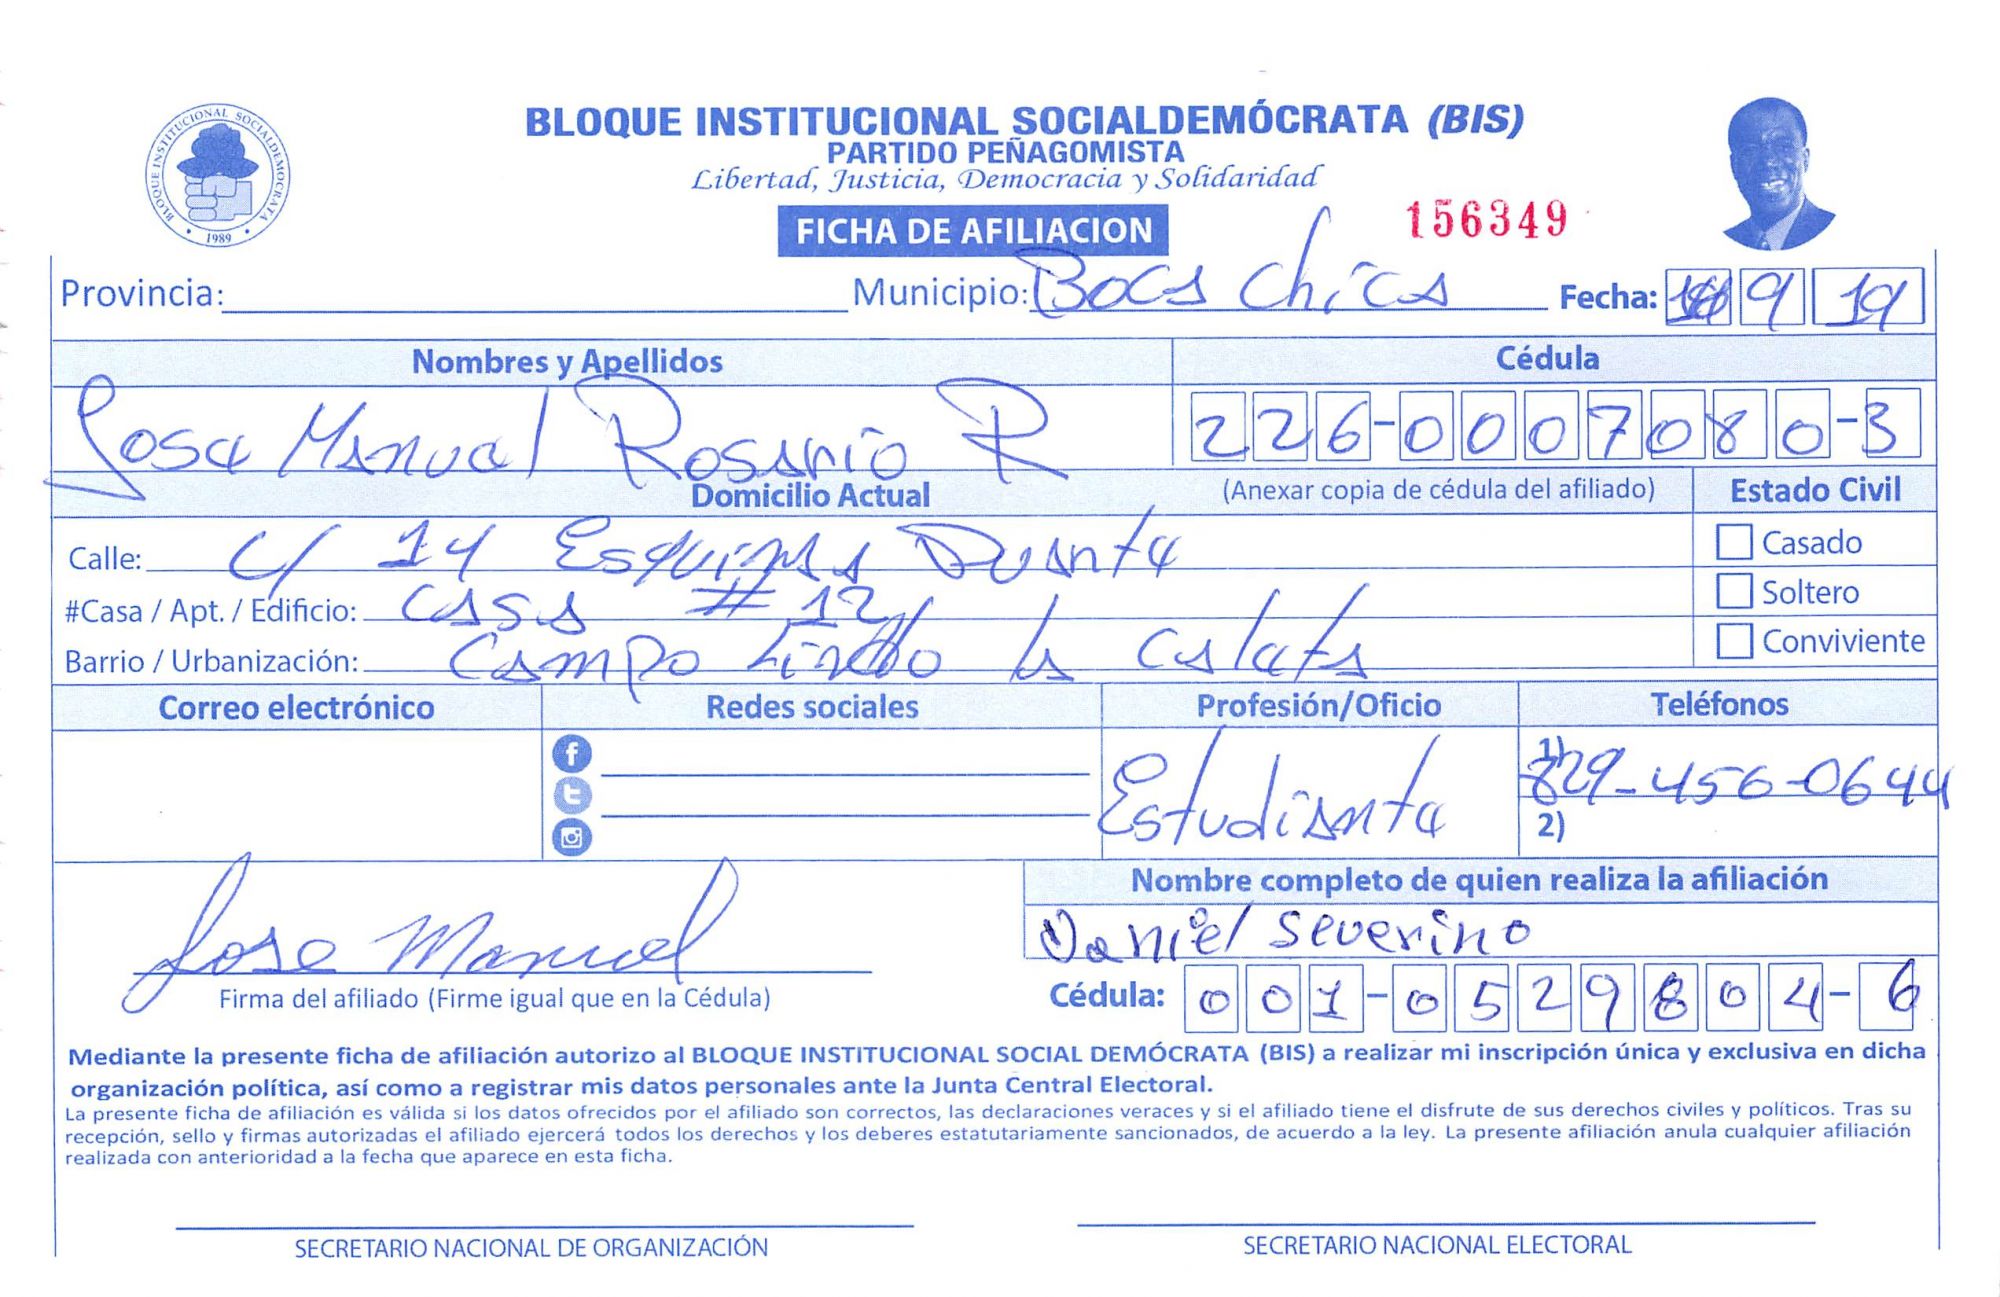 BLOQUE INSTITUCIONAL SOCIALDEMÓCRATA (BIS)
PARTIDO PEÑAGOMISTA
Libertad, Justicia, Democracia y Solidaridad
BLOQUE INSTITUCIONAL SOCIALDEMOCRATA
1989
FICHA DE AFILIACION
156349
Provincia: Municipio: Boca Chica Fecha: 9 19
Nombres y Apellidos Cédula
Jose Manuel Rosario R 226-0007080-3
Domicilio Actual (Anexar copia de cédula del afiliado) Estado Civil
Calle: c/ 14 Esquina Duarte Casado
#Casa / Apt. / Edificio: casa #12 Soltero
Barrio / Urbanización: Campo Lindo la caleta Conviviente
Correo electrónico Redes sociales Profesión/Oficio Teléfonos
Estudiante 1) 829-456-0644
2)
Nombre completo de quien realiza la afiliación
Jose Manuel Daniel Severino
Firma del afiliado (Firme igual que en la Cédula) Cédula: 001-0529804-6
Mediante la presente ficha de afiliación autorizo al BLOQUE INSTITUCIONAL SOCIAL DEMÓCRATA (BIS) a realizar mi inscripción única y exclusiva en dicha
organización política, así como a registrar mis datos personales ante la Junta Central Electoral.
La presente ficha de afiliación es válida si los datos ofrecidos por el afiliado son correctos, las declaraciones veraces y si el afiliado tiene el disfrute de sus derechos civiles y políticos. Tras su
recepción, sello y firmas autorizadas el afiliado ejercerá todos los derechos y los deberes estatutariamente sancionados, de acuerdo a la ley. La presente afiliación anula cualquier afiliación
realizada con anterioridad a la fecha que aparece en esta ficha.
SECRETARIO NACIONAL DE ORGANIZACIÓN SECRETARIO NACIONAL ELECTORAL